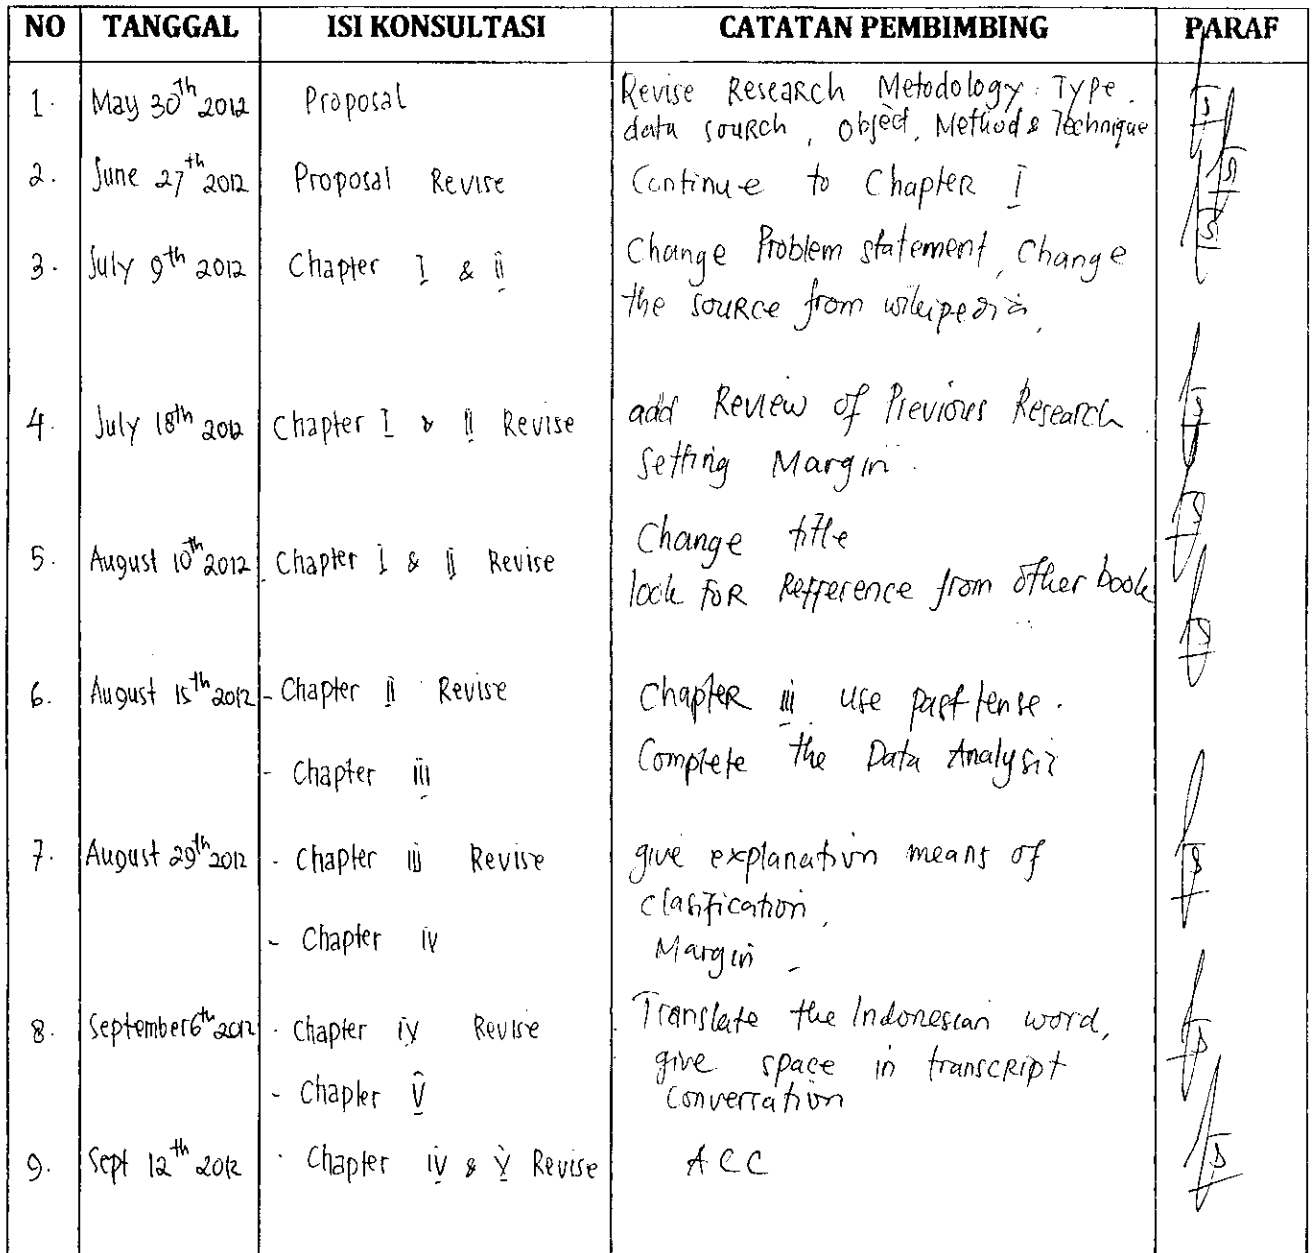 NO TANGGAL ISI KONSULTASI CATATAN PEMBIMBING PARAF
1. May 30th 2012 Proposal Revise Research Metodology: Type.
data sourch, object, Method & Technique
2. June 27th 2012 Proposal Revise Continue to Chapter I
3. July 9th 2012 Chapter I & ii Change Problem statement, Change
the source from wikipedia.
4. July 18th 2012 Chapter I & II Revise add Review of Previous Research.
Setting Margin.
5. August 10th 2012 Chapter I & II Revise Change title
look for Refference from other book
6. August 15th 2012 - Chapter ii Revise Chapter iii use past tense.
- Chapter iii Complete the Data Analysis
7. August 29th 2012 - Chapter iii Revise give explanation means of
clasification,
- Chapter iv Margin
8. September 6th 2012 - Chapter iv Revise Translate the Indonesian word,
give space in transcript
- Chapter V Conversation
9. Sept 12th 2012 - Chapter iv & V Revise ACC